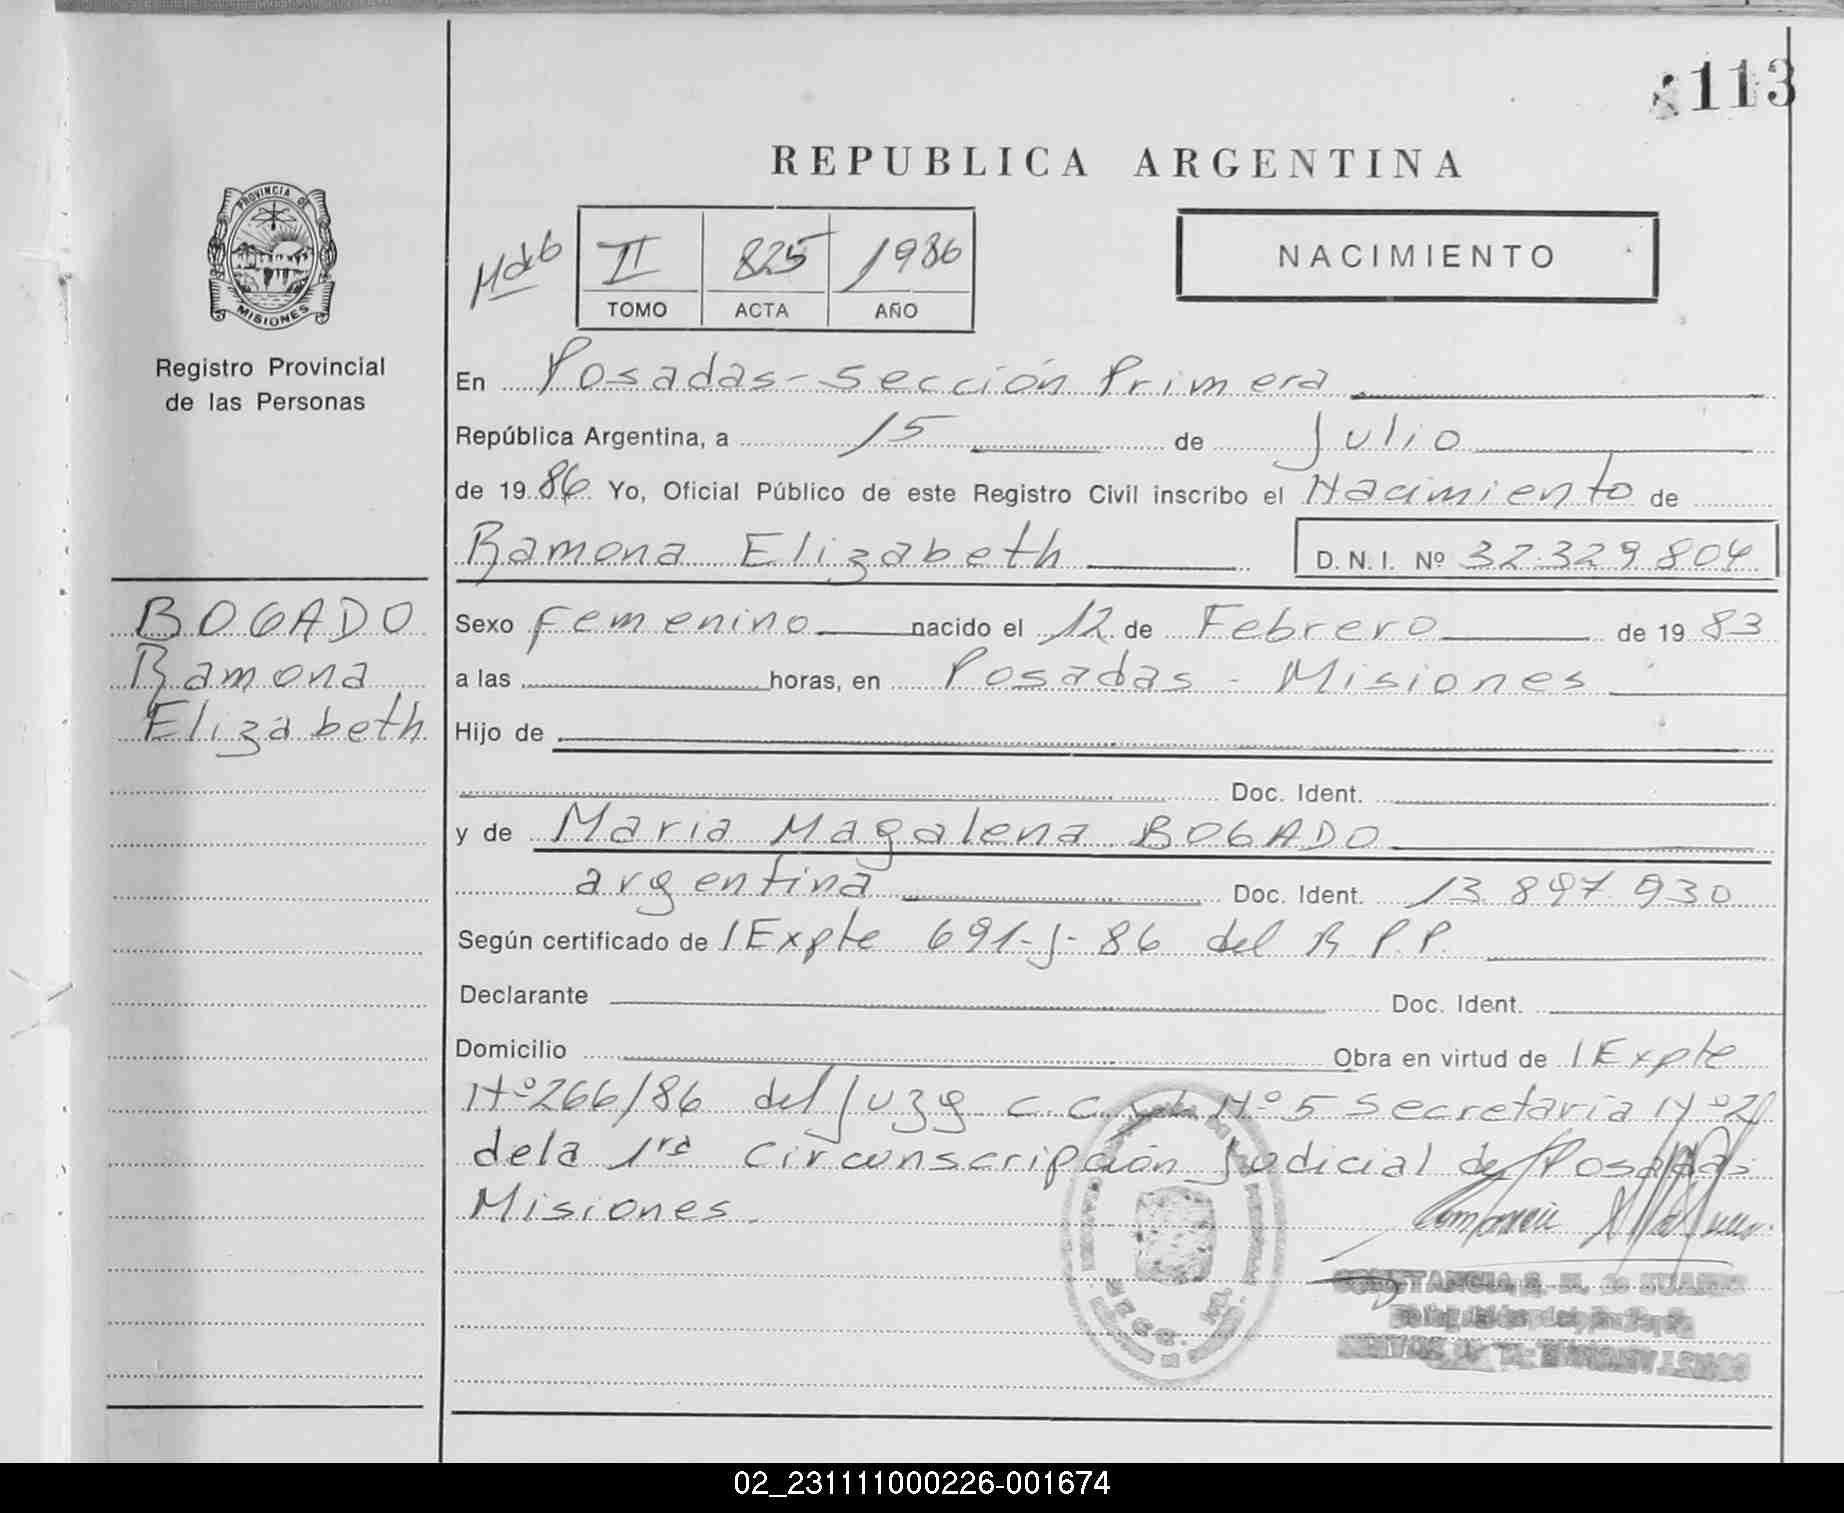 113
REPUBLICA ARGENTINA
PROVINCIA DE
MISIONES
Registro Provincial
de las Personas
II 825 1986
TOMO ACTA AÑO
NACIMIENTO
En Posadas-Sección Primera
República Argentina, a 15 de Julio
de 1986 Yo, Oficial Público de este Registro Civil inscribo el Nacimiento de
Ramona Elizabeth D.N.I. Nº 32.329.804
BOGADO
Ramona
Elizabeth
Sexo Femenino nacido el 12 de Febrero de 1983
a las horas, en Posadas - Misiones
Hijo de
Doc. Ident.
y de Maria Magalena BOGADO
argentina Doc. Ident. 13.897.930
Según certificado de / Expte 691-J-86 del R.P.P.
Declarante Doc. Ident.
Domicilio Obra en virtud de / Expte
Nº 266/86 del Juzg C.C. Nº 5 Secretaria Nº
dela 1ra Circunscripción Judicial de Posadas
Misiones.
02_231111000226-001674